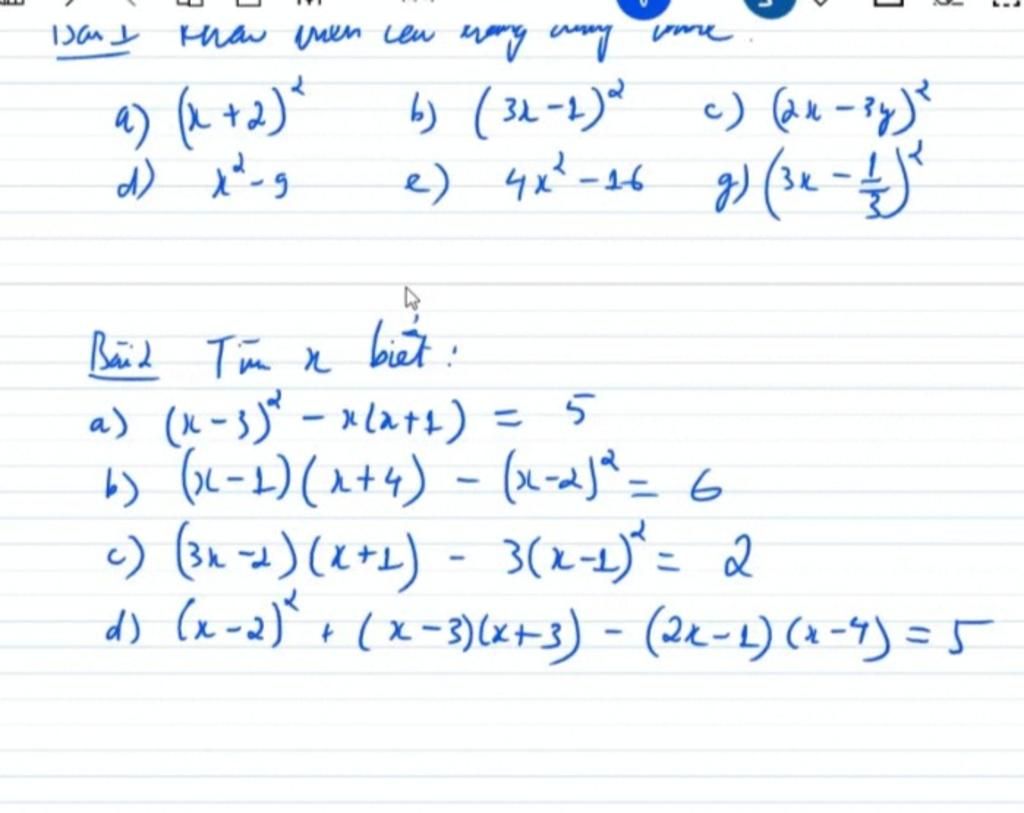 Bài 1 Khai triển các hằng đẳng thức.
a) (x + 2)² b) (3x - 1)² c) (2x - 3y)²
d) x² - 9 e) 4x² - 16 g) (3x - 1/3)²
Bài 2 Tìm x biết:
a) (x - 3)² - x(x + 1) = 5
b) (x - 1)(x + 4) - (x - 2)² = 6
c) (3x - 2)(x + 1) - 3(x - 1)² = 2
d) (x - 2)² + (x - 3)(x + 3) - (2x - 1)(x - 4) = 5